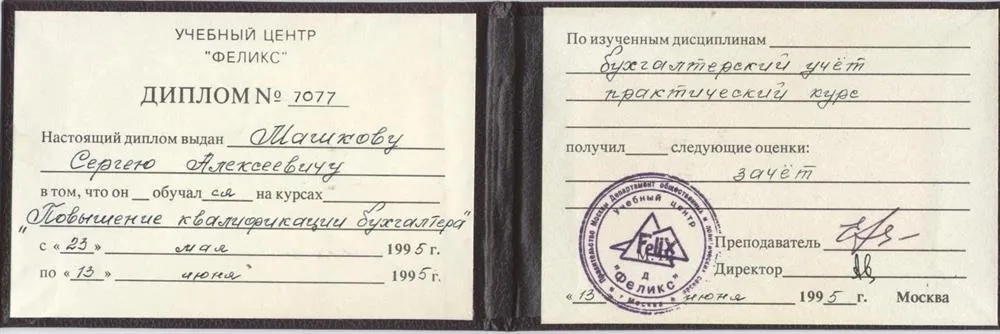 УЧЕБНЫЙ ЦЕНТР
"ФЕЛИКС"
ДИПЛОМ № 7077
Настоящий диплом выдан Машкову
Сергею Алексеевичу
в том, что он обучал ся на курсах
"Повышение квалификации бухгалтера"
с « 23 » мая 1995 г.
по « 13 » июня 1995 г.
По изученным дисциплинам
бухгалтерский учёт
практический курс
получил следующие оценки:
зачёт
Правительство Москвы Департамент общественных и
Учебный центр
Felix
Д
"ФЕЛИКС"
г. Москва
Преподаватель
Директор
« 13 » июня 1995 г. Москва